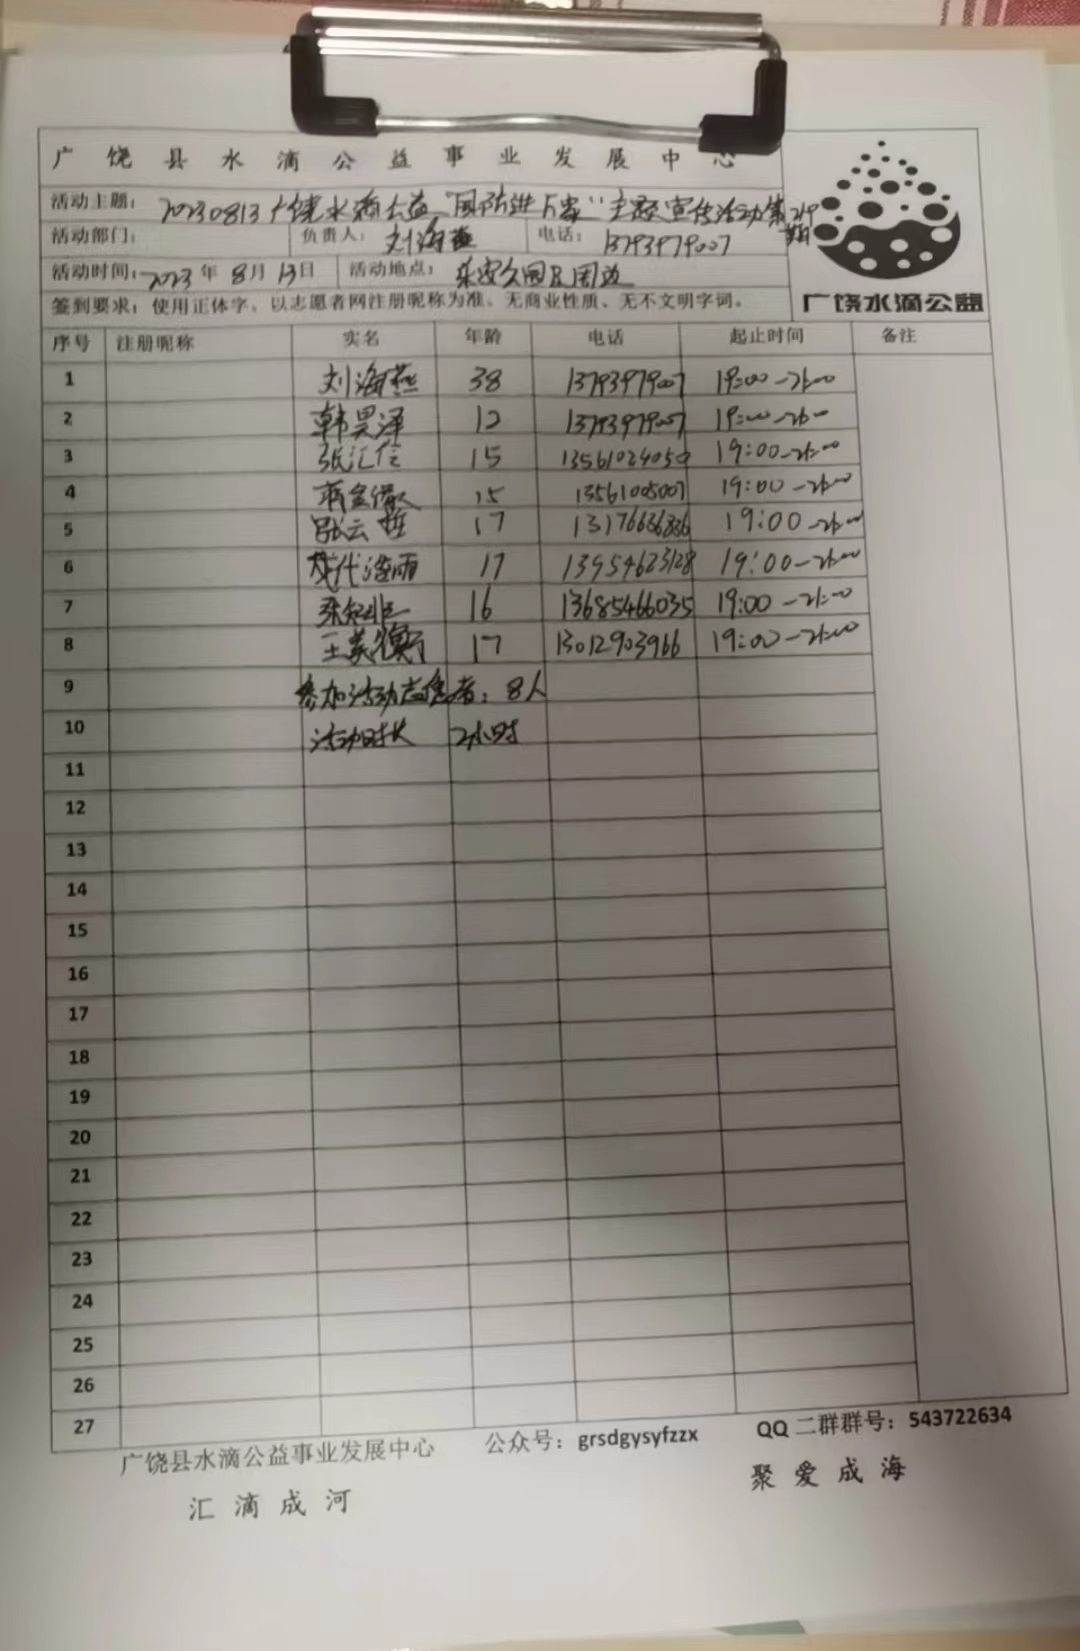 广饶县水滴公益事业发展中心
活动主题：20230813广饶水滴公益"国防进万家"主题宣传活动第 期
活动部门： 负责人：刘海燕 电话：13793979007
活动时间：2023年8月13日 活动地点：乐安公园及周边
签到要求：使用正体字，以志愿者网注册昵称为准，无商业性质、无不文明字词。
广饶水滴公益
序号 注册昵称 实名 年龄 电话 起止时间 备注
1 刘海燕 38 13793979007 19:00-21:00
2 韩昊泽 12 13793979007 19:00-21:00
3 张汇信 15 13561024050 19:00-21:00
4 15 13561005007 19:00-21:00
5 张云哲 17 19:00-21:00
6 17 13954623128 19:00-21:00
7 16 13685466035 19:00-21:00
8 王美 17 13012903966 19:00-21:00
9 参加活动志愿者：8人
10 活动时长 2小时
11
12
13
14
15
16
17
18
19
20
21
22
23
24
25
26
27
广饶县水滴公益事业发展中心 公众号：grsdgysyfzzx QQ二群群号：543722634
汇滴成河 聚爱成海